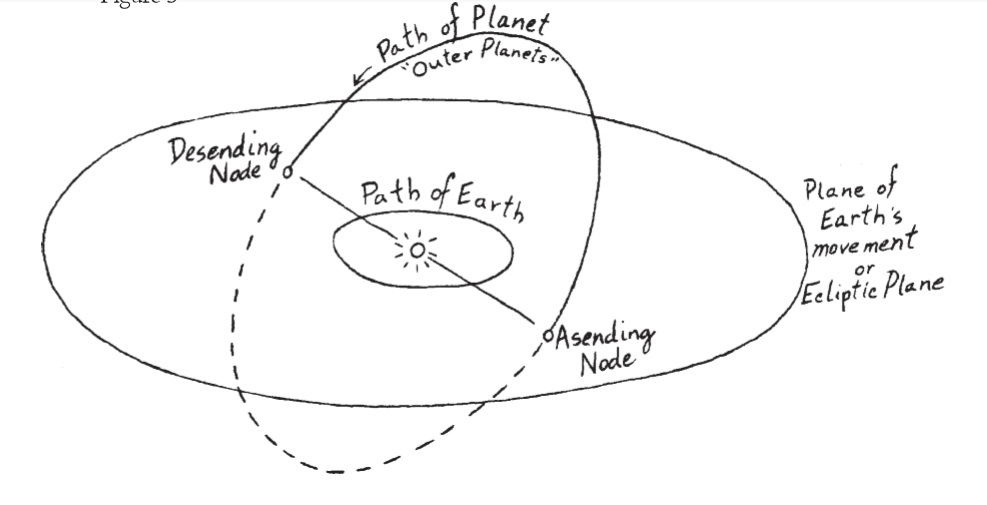 Path of Planet
"Outer Planets"
Desending
Node
Path of Earth
Plane of
Earth's
movement
or
Ecliptic Plane
Asending
Node